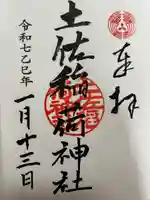 奉拝
土佐稲荷神社
令和七乙巳年
一月十三日